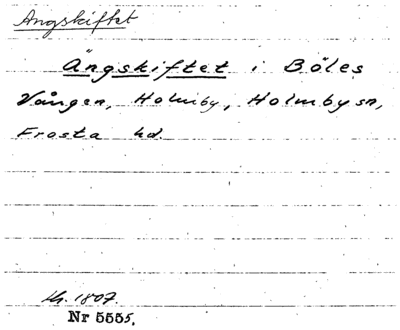 Ängskiftet
Ängskiftet i Böles
Vången, Holmby, Holmby sn,
Frosta hd.
Kh. 1807.
Nr 5555.